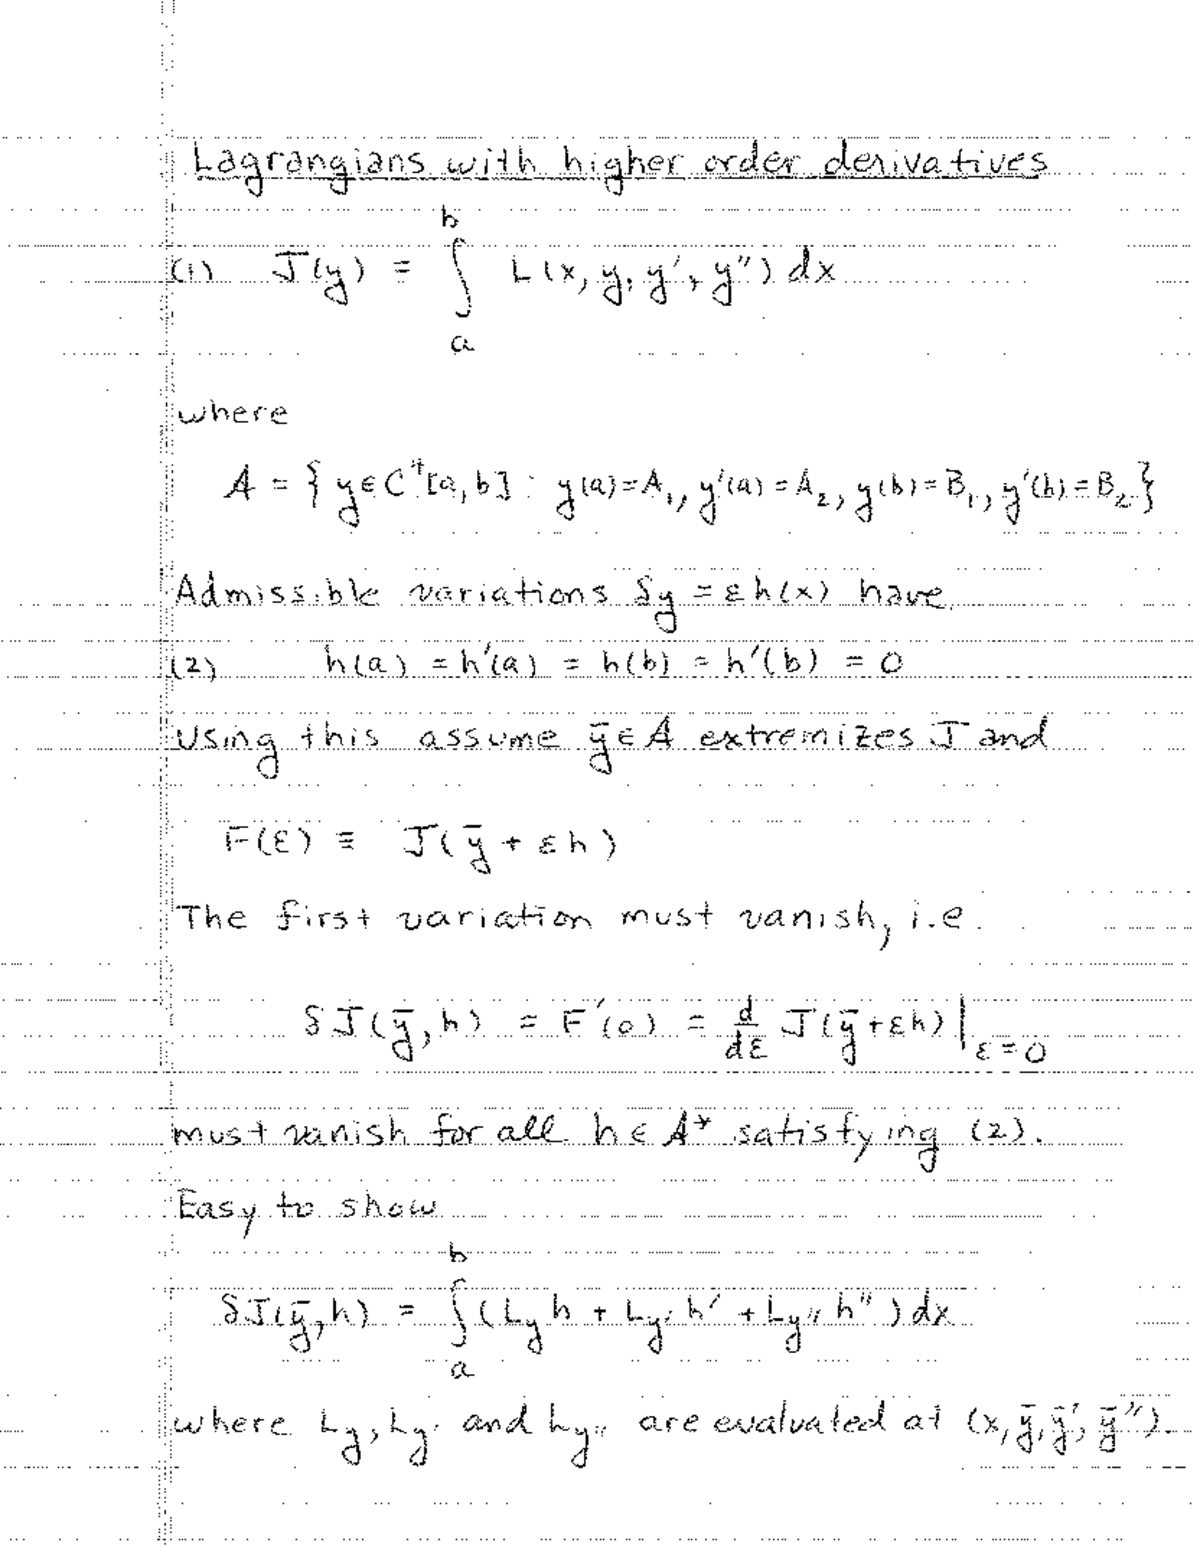 Lagrangians with higher order derivatives
(1) J(y) = ∫_a^b L(x, y, y', y'') dx
where
A = { y ∈ C⁴[a, b] : y(a) = A₁, y'(a) = A₂, y(b) = B₁, y'(b) = B₂ }
Admissible variations δy = εh(x) have
(2) h(a) = h'(a) = h(b) = h'(b) = 0
Using this assume ȳ ∈ A extremizes J and
F(ε) ≡ J(ȳ + εh)
The first variation must vanish, i.e.
δJ(ȳ, h) = F'(0) = d/dε J(ȳ + εh)|_{ε=0}
must vanish for all h ∈ A* satisfying (2).
Easy to show
δJ(ȳ, h) = ∫_a^b (L_y h + L_y' h' + L_y'' h'') dx
where L_y, L_y' and L_y'' are evaluated at (x, ȳ, ȳ', ȳ'').